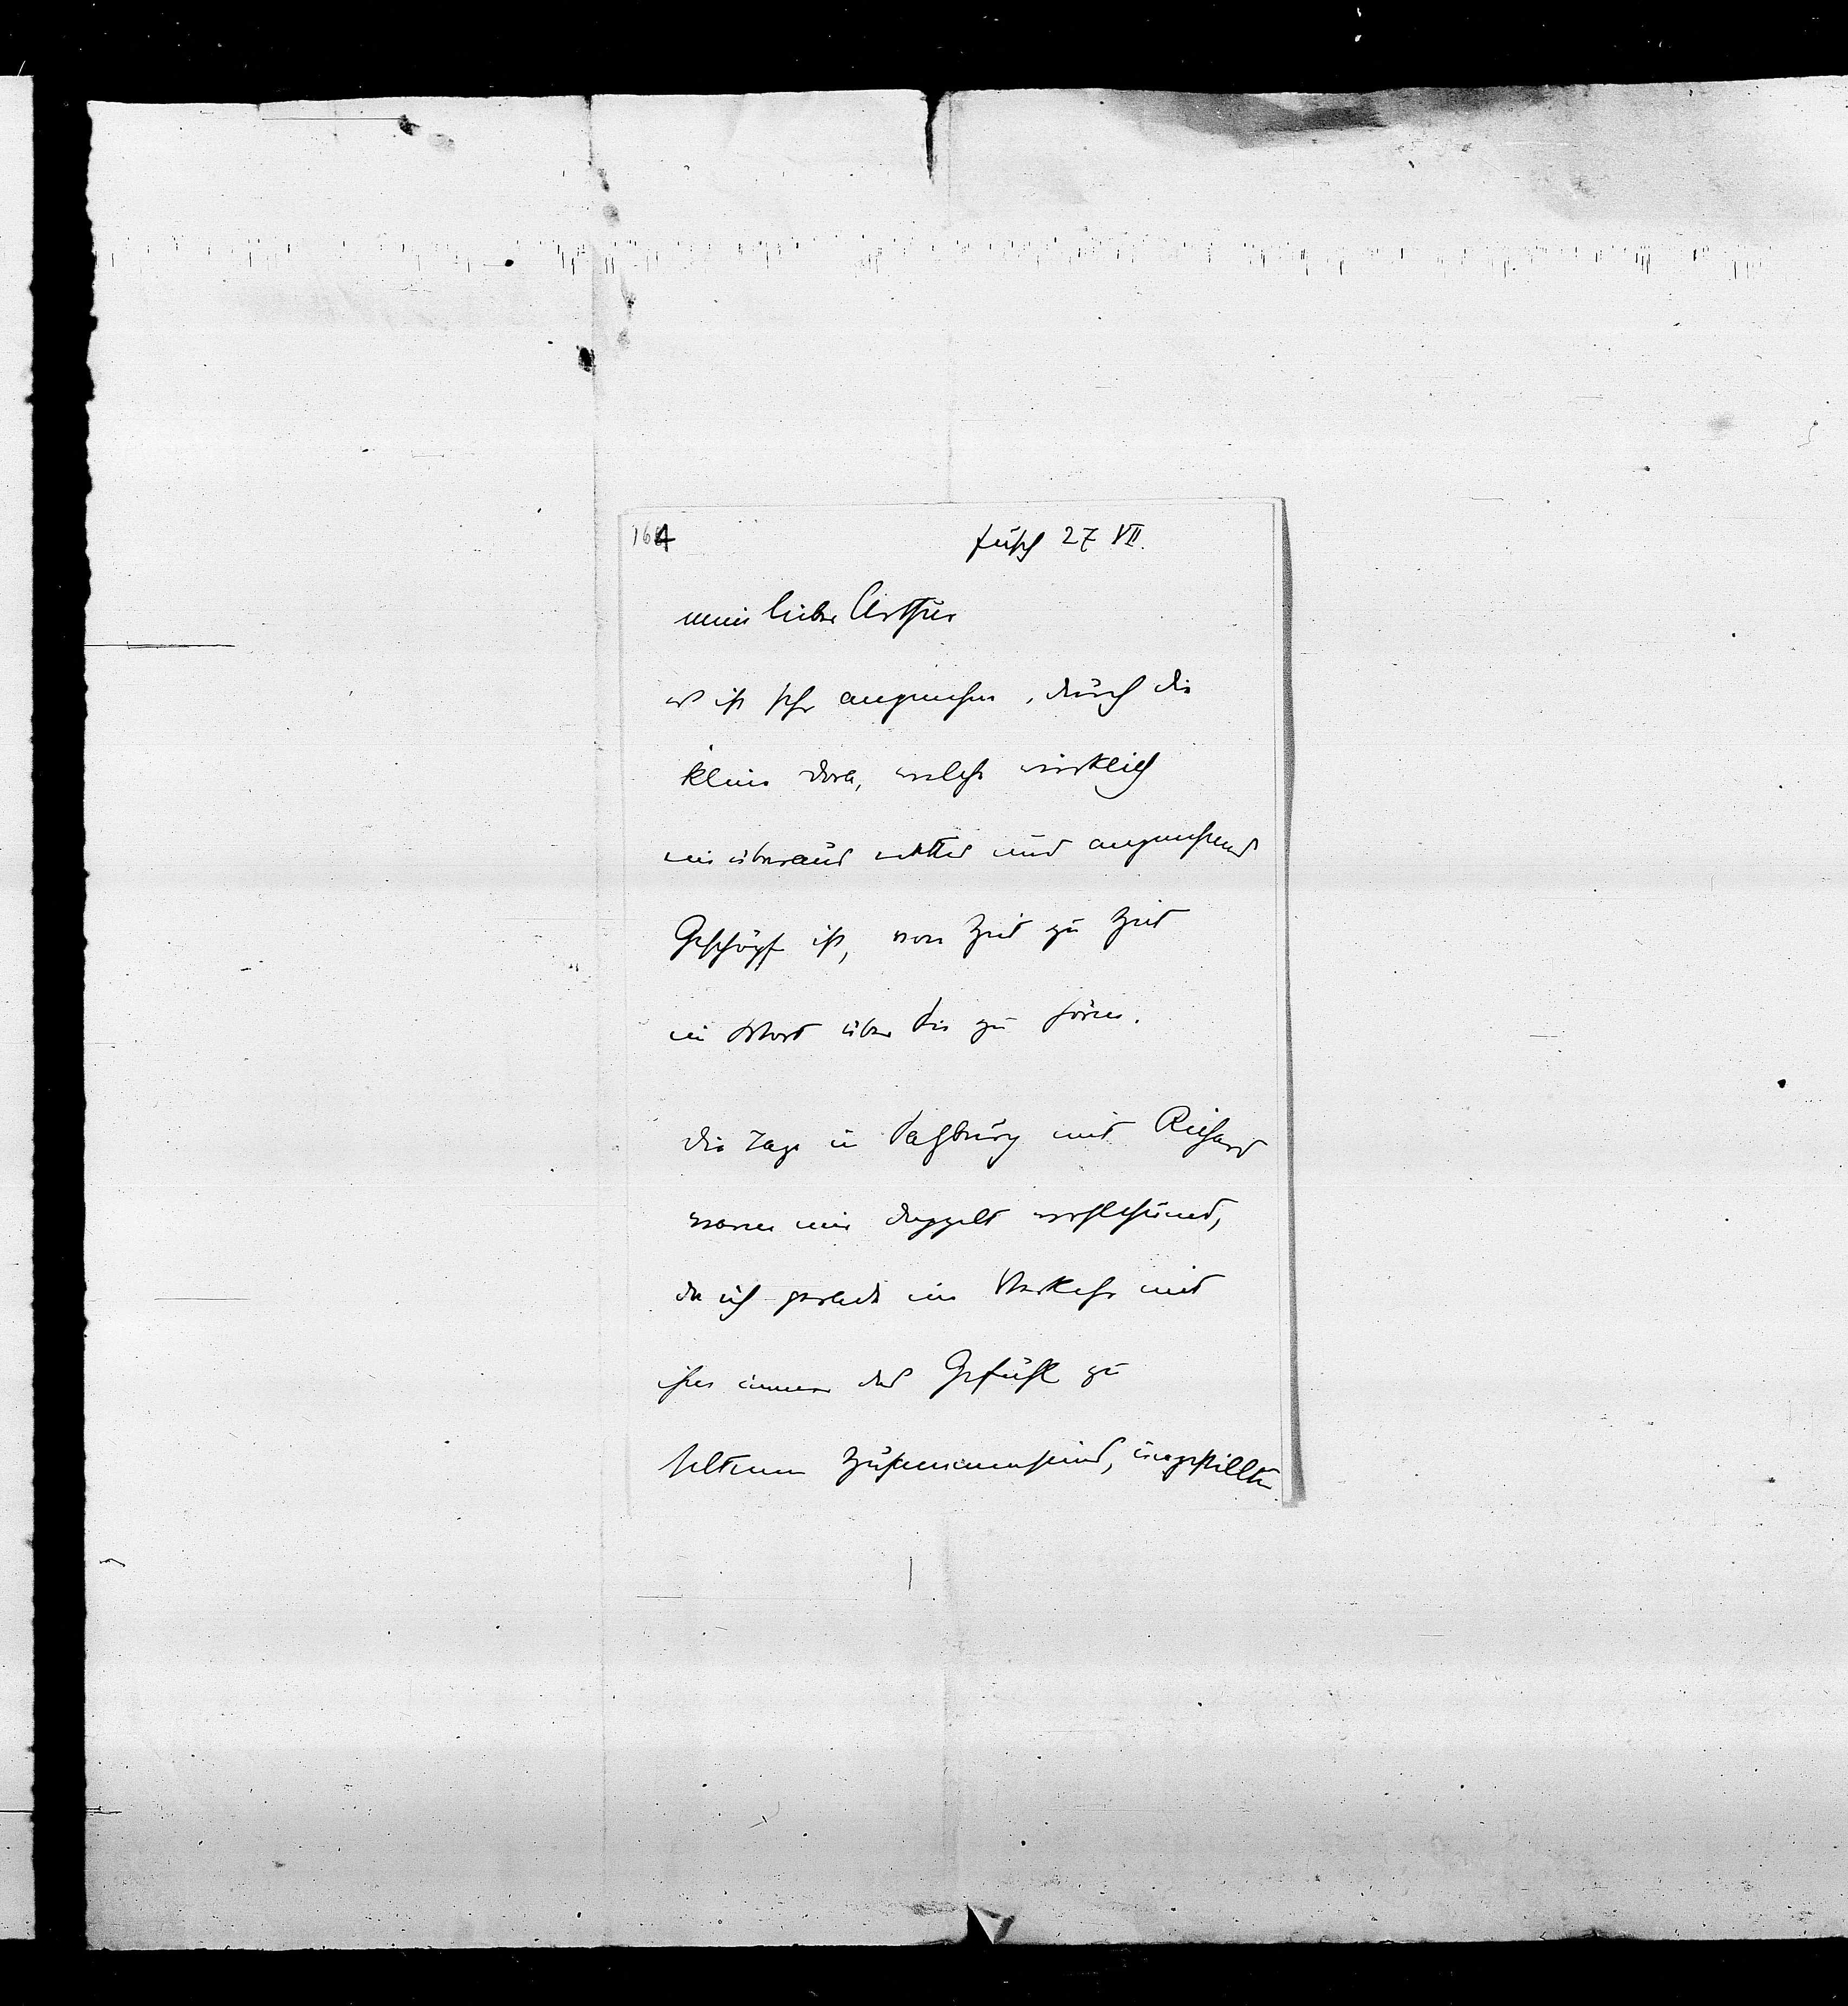 164
Fusch 27 VII.
mein lieber Arthur
es ist sehr angenehm, durch die
kleine Dora, welche wirklich
ein überaus nettes und angenehmes
Geschöpf ist, von Zeit zu Zeit
ein Wort über Sie zu hören.
Die Tage in Salzburg mit Richard
waren mir doppelt wohlthuend,
da ich gerade im Verkehr mit
ihm immer das Gefühl zu
seltenen Zusammenseins, ungestillten